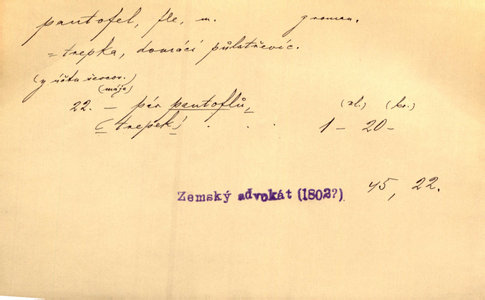 pantofel, fle, m. z roman.
= trepka, domácí půlstřevíc.
(z účtu ševcov.)
(mája)
22. – pár pantoflů, (zl.) (kr.)
(trepek) . . . 1 – 20 –
Zemský advokát (1802?) 45, 22.